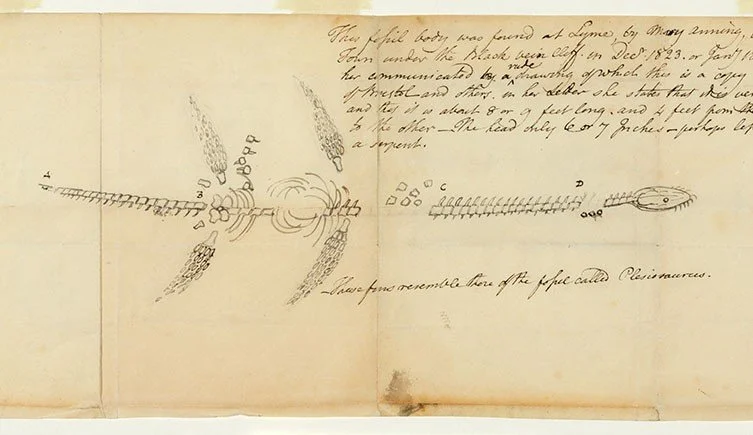 This fossil body was found at Lyme, by Mary Anning,
Town under the Black vein Cliff. in Decr 1823. or Jany
her communicated by a rude drawing of which this is a copy
of Bristol and others, in her letter she states that it is
and that it is about 8 or 9 feet long. and 4 feet from
to the other — The head only 6 or 7 Inches — perhaps
a serpent.
A
B
C
D
— These fins resemble those of the fossil called Plesiosaurus.